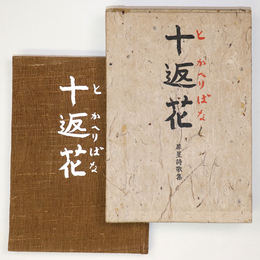 十返花
とかへりばな
十返花
とかへりばな
犀星詩歌集